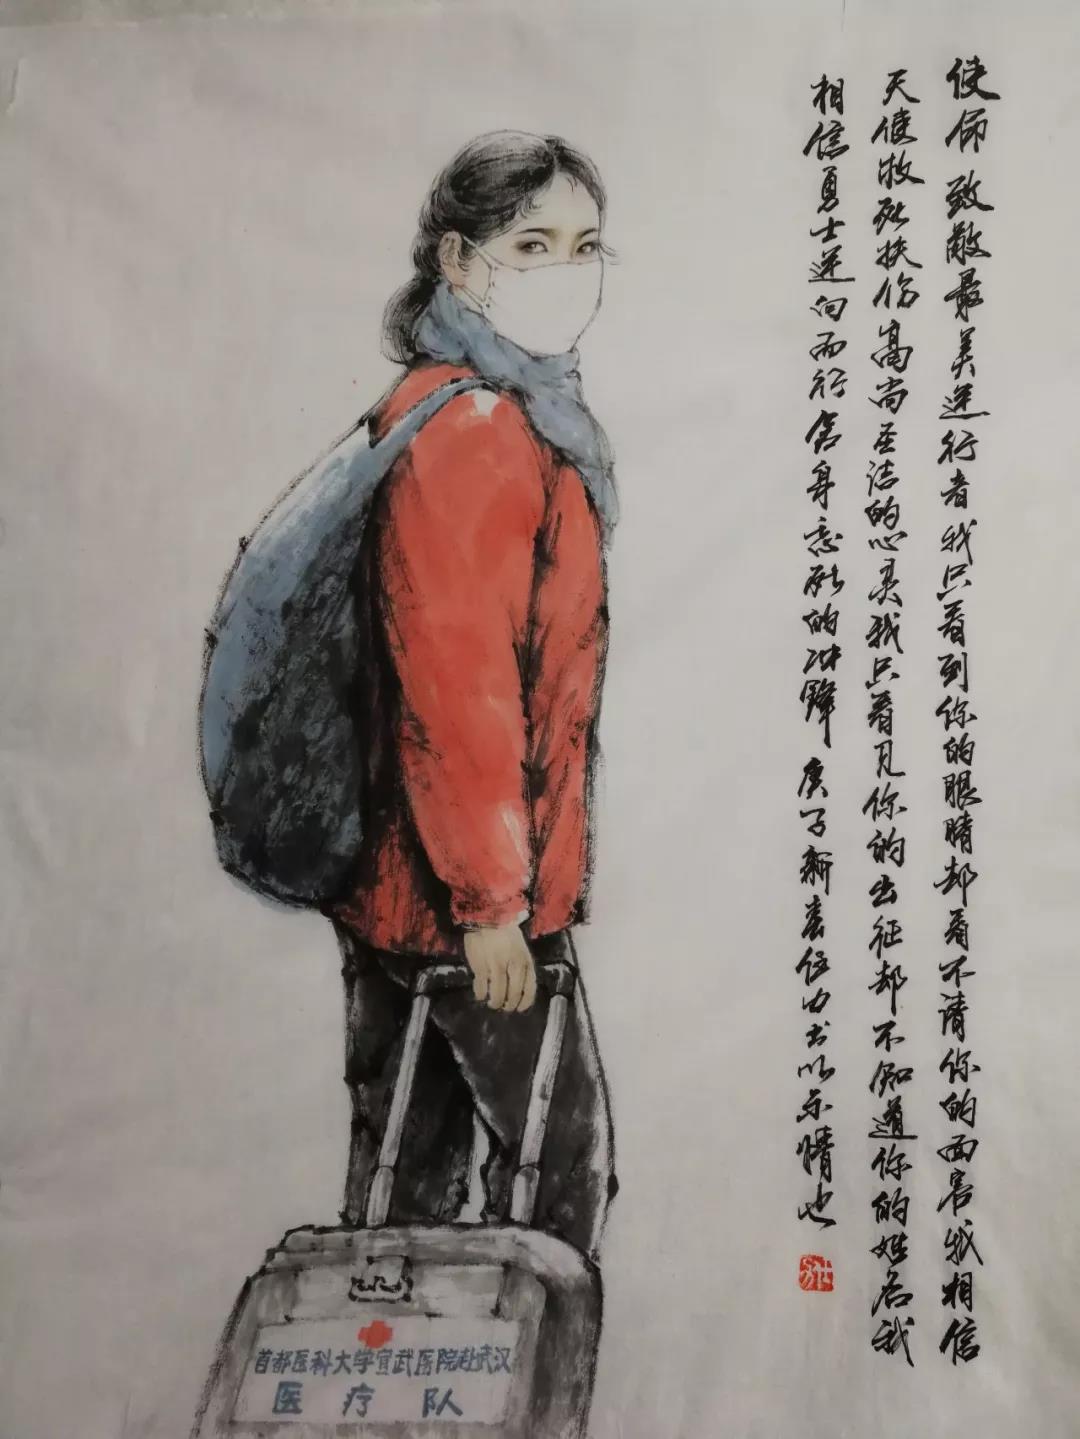 使命致敬最美逆行者我只看到你的眼睛却看不清你的面容我相信
天使救死扶伤高尚圣洁的心灵我只看见你的出征却不知道你的姓名我
相信勇士逆向而行舍身忘死的冲锋 庚子新春任力书以示情也
首都医科大学宣武医院赴武汉
医疗队